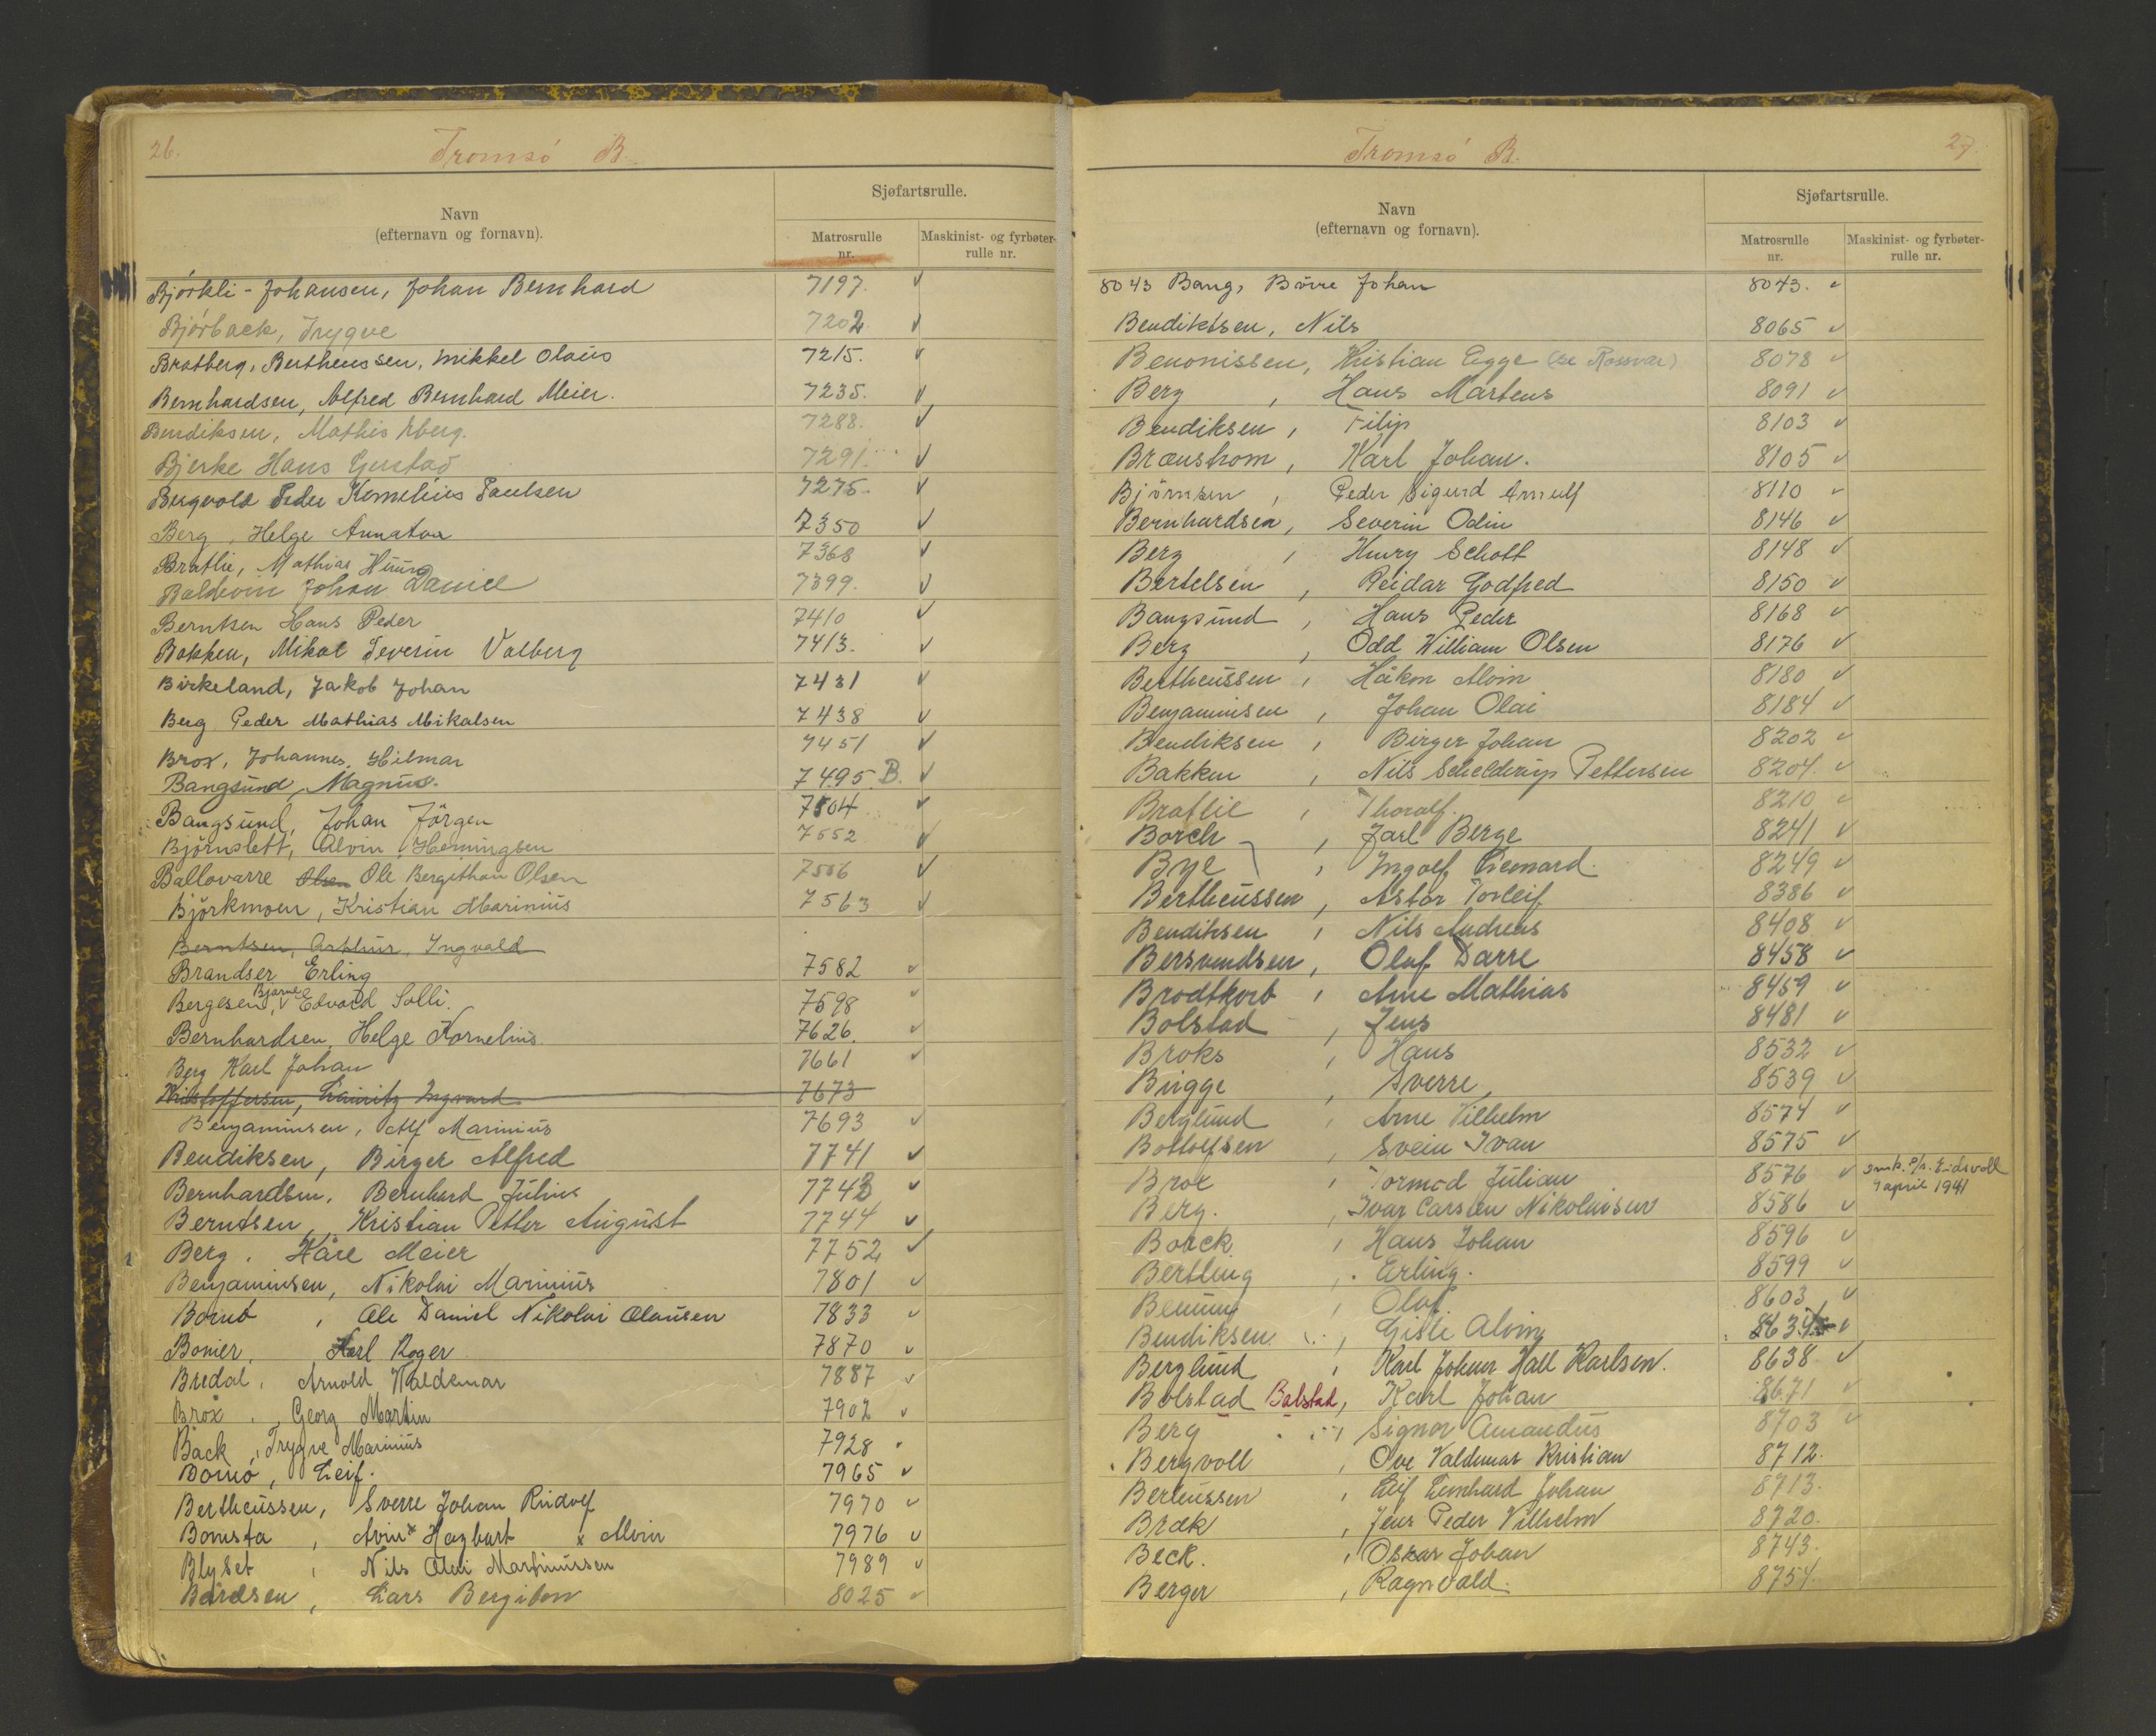 26.
Tromsö B.
Navn
(efternavn og fornavn).
Sjøfartsrulle.
Matrosrulle nr.
Maskinist- og fyrbøter-rulle nr.
Björkli-Johansen, Johan Bernhard 7197. ✓
Björback, Trygve 7202. ✓
Bratberg, Bertheussen, Mikkel Olaus 7215. ✓
Bernhardsen, Alfred Bernhard Meier. 7235. ✓
Bendiksen, Mathis Åberg. 7288. ✓
Bjerke Hans Gustav 7291. ✓
Bergvold Peder Kornelius Paulsen 7275. ✓
Berg, Helge Annaton 7350 ✓
Bratlie, Mathias 7368 ✓
Baldevin Johan Daniel 7399. ✓
Berntsen Hans Peder 7410 ✓
Bakken, Mikal Severin Valberg 7413. ✓
Birkeland, Jakob Johan 7431 ✓
Berg Peder Mathias Mikalsen 7438 ✓
Brox, Johannes Hilmar 7451 ✓
Bangsund, Magnus. 7495 B. ✓
Bangsund, Johan Jörgen 7504 ✓
Björnslett, Alvin Henningsen 7552 ✓
Ballovarre Olsen Ole Bergithon Olsen 7506 ✓
Björkmoen, Kristian Marinius 7563 ✓
Berntsen, Arthur Ingvald
Brandser Erling 7582 ✓
Bergesen, Bjarne Edvard Solli. 7598 ✓
Bernhardsen, Helge Kornelius 7626. ✓
Berg Karl Johan 7661 ✓
Kristoffersen, Lauritz Ingvard 7673
Benjaminsen, Alf Marinius 7693 ✓
Bendiksen, Birger Alfred 7741 ✓
Bernhardsen, Bernhard Julius 7743 ✓
Berntsen, Kristian Petter August 7744 ✓
Berg, Kåre Meier 7752 ✓
Benjaminsen, Nikolai Marinius 7801 ✓
Bornt, Ole Daniel Nikolai Olausen 7833 ✓
Bonier, Karl Roger 7870 ✓
Bredal, Arnold Valdemar 7887 ✓
Brox, Georg Martin 7902 ✓
Back, Trygve Marinius 7928 ✓
Bomö, Leif. 7965 ✓
Bertheussen, Sverre Johan Rudolf 7970 ✓
Bomsta, Arin x Hagbart x Alvin 7976 ✓
Blyset, Nils Olai Martinussen 7989 ✓
Bårdsen, Lars Bergiton 8025 ✓
27.
Tromsö B.
Navn
(efternavn og fornavn).
Sjøfartsrulle.
Matrosrulle nr.
Maskinist- og fyrbøter-rulle nr.
8043 Bang, Börre Johan 8043. ✓
Bendiktsen, Nils 8065 ✓
Benonissen, Kristian Egge (se Rossvar) 8078 ✓
Berg, Hans Martens 8091 ✓
Bendiksen, Filip 8103 ✓
Brænstrom, Karl Johan. 8105 ✓
Björnsen, Peder Sigurd Arnulf 8110 ✓
Bernhardsen, Severin Odin 8146 ✓
Berg, Henry Schott 8148 ✓
Bertelsen, Reidar Godfred 8150 ✓
Bangsund, Hans Peder 8168 ✓
Berg, Odd William Olsen 8176 ✓
Bertheussen, Håkon Alvin 8180 ✓
Benjaminsen, Johan Olai 8184 ✓
Bendiksen, Birger Johan 8202 ✓
Bakken, Nils Schelderup Pettersen 8204. ✓
Bratlie, Thoralf. 8210 ✓
Borch, Jarl Berge 8241 ✓
Bye, Ingolf Leonard. 8249 ✓
Bertheussen, Astor Torleif 8386 ✓
Bendiksen, Nils Andreas 8408 ✓
Bersvendsen, Olaf Darre 8458 ✓
Brodtkorb, Arne Mathias 8459 ✓
Bolstad, Jens 8481 ✓
Broks, Hans 8532 ✓
Brigge, Sverre 8539 ✓
Berglund, Arne Vilhelm 8574 ✓
Bottolfsen, Svein Ivan 8575 ✓
Brox, Tormod Julian 8576 ✓ omk. S/s. Eidsvoll
7 april 1941
Berg., Ivar Carsten Nikolaisen 8586 ✓
Boack, Hans Johan 8596 ✓
Bertling, Erling. 8599 ✓
Benum, Olaf. 8603 ✓
Bendiksen, Gisle Alvin 8634 ✓
Berglund, Karl Johan Hall Karlsen. 8638 ✓
Bolstad Balstad, Karl Johan 8671 ✓
Berg, Signor Amandus 8703 ✓
Bergvoll, Ove Valdemar Kristian 8712.
Berteussen, Leif Leonhard Johan 8713.
Bræk, Jens Peder Vilhelm 8720.
Beck., Oskar Johan 8743.
Berger, Ragnvald. 8754.